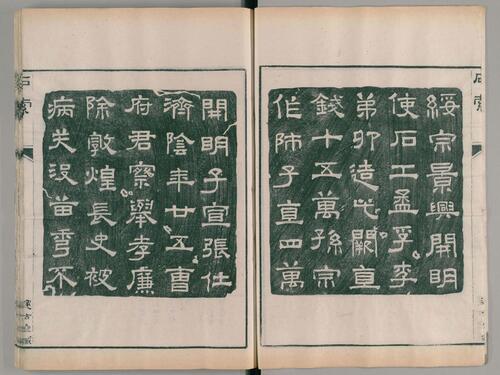 石索
綏宗景興開明
使石工孟孚李
弟卯造此闕直
錢十五萬孫宗
作師子直四萬
開明子宣張仕
濟陰年廿五曹
府君察舉孝廉
除敦煌長史被
病夭没苗秀不
石索